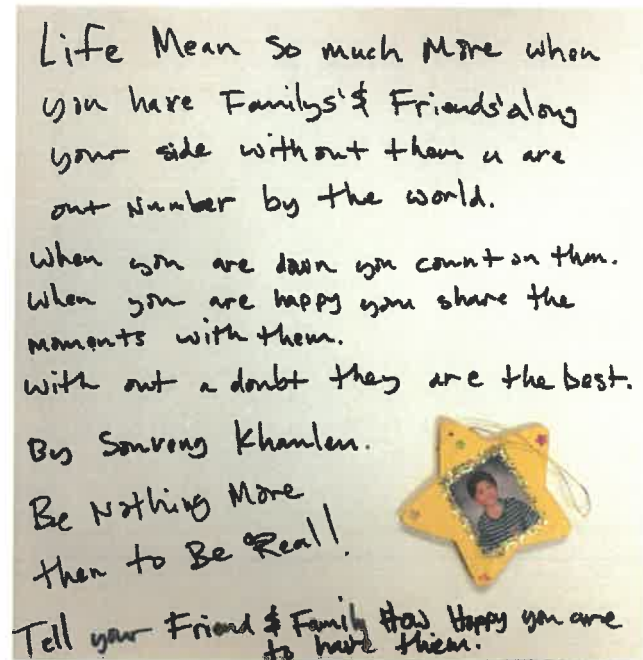 Life Mean So much More when
you have Familys' & Friends' along
your side without them u are
out Number by the world.
When you are down you count on them.
When you are happy you share the
moments with them.
With out a doubt they are the best.
By Sonveng Khamlen.
Be Nothing More
then to Be Real!
Tell your Friend & Family How Happy you are
to have them.